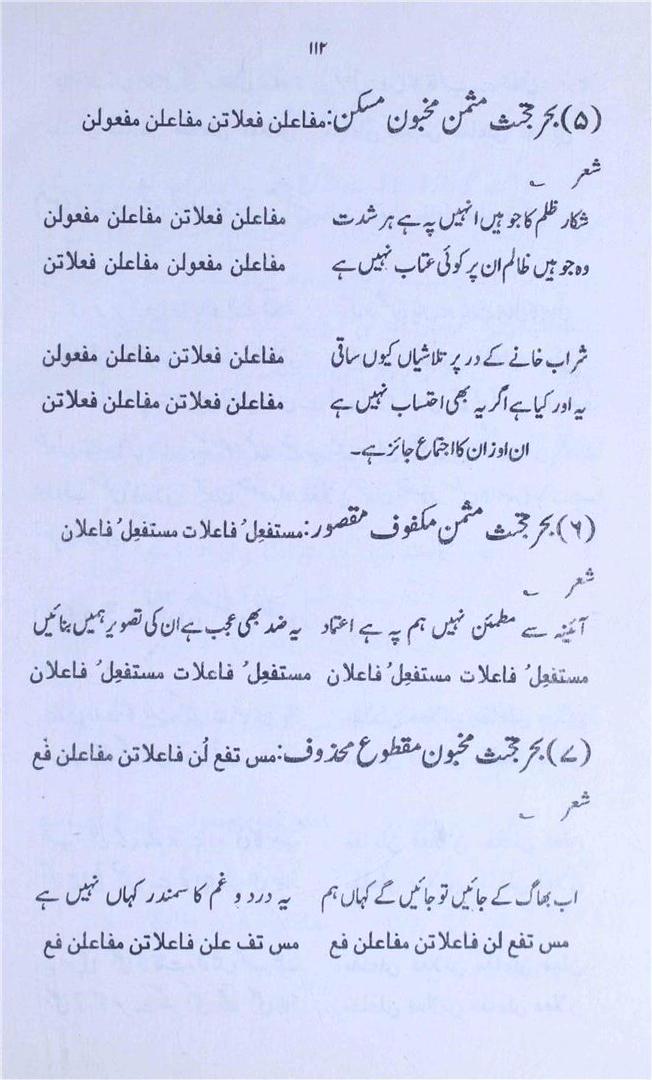 ۱۱۲
(۵) بحر مجتث مثمن مخبون مسکن: مفاعلن فعلاتن مفاعلن مفعولن
شعر
شکار ظلم کا جو ہیں انہیں پہ ہے ہر شدت مفاعلن فعلاتن مفاعلن مفعولن
وہ جو ہیں ظالم ان پر کوئی عتاب نہیں ہے مفاعلن مفعولن مفاعلن فعلاتن
شراب خانے کے در پر تلاشیاں کیوں ساقی مفاعلن فعلاتن مفاعلن مفعولن
یہ اور کیا ہے اگر یہ بھی احتساب نہیں ہے مفاعلن فعلاتن مفاعلن فعلاتن
ان اوزان کا اجتماع جائز ہے۔
(۶) بحر مجتث مثمن مکفوف مقصور: مستفعِلُ فاعلات مستفعِلُ فاعلان
شعر
آئینہ سے مطمئن نہیں ہم پہ ہے اعتماد یہ ضد بھی عجب ہے ان کی تصویر ہمیں بنائیں
مستفعِلُ فاعلات مستفعِلُ فاعلان مستفعِلُ فاعلات مستفعِلُ فاعلان
(۷) بحر مجتث مخبون مقطوع محذوف: مس تفع لُن فاعلاتن مفاعلن فَع
شعر
اب بھاگ کے جائیں تو جائیں گے کہاں ہم یہ درد و غم کا سمندر کہاں نہیں ہے
مس تفع لن فاعلاتن مفاعلن فع مس تف علن فاعلاتن مفاعلن فع